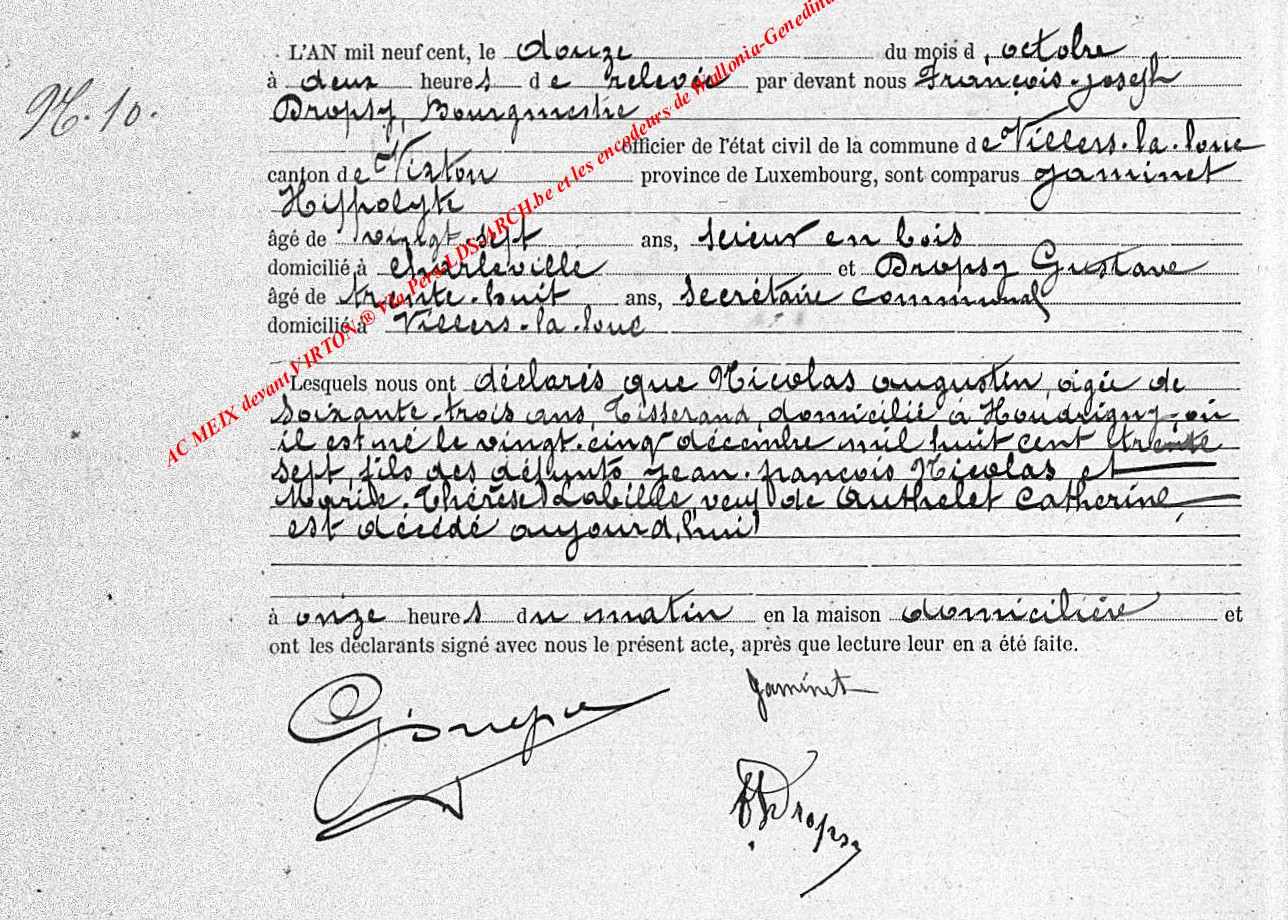 N. 10.
L'AN mil neuf cent, le douze du mois d'octobre
à deux heures de relevée par devant nous François-Joseph
Dropsy, Bourgmestre
officier de l'état civil de la commune de Villers-la-loue
canton de Virton province de Luxembourg, sont comparus Jaminet
Hippolyte
âgé de vingt-sept ans, scieur en bois
domicilié à Charleville et Dropsy Gustave
âgé de trente-huit ans, secrétaire communal
domicilié à Villers-la-loue
Lesquels nous ont déclarés que Nicolas augustin, âgée de
soixante-trois ans, Tisserand, domicilié à Houdrigny, où
il est né le vingt-cinq décembre mil huit cent trente
sept, fils des défunts Jean-françois Nicolas et
Marie-Thérèse Labille, veuf de Authelet Catherine,
est décédé aujourd'hui
à onze heures du matin en la maison domicilière et
ont les déclarants signé avec nous le présent acte, après que lecture leur en a été faite.
Jaminet
Dropsy
AC MEIX devant VIRTON ® Via Pers LDS-ARCH.be et les encodeurs de Wallonia-Genedina